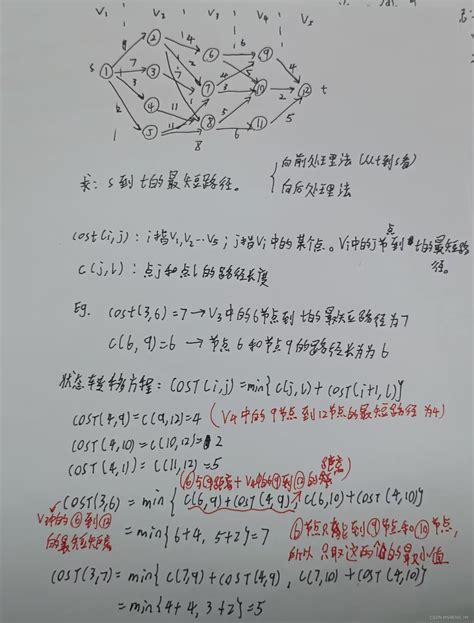 V₁ V₂ V₃ V₄ V₅
s t
1 2 3 4 5 6 7 8 9 10 11 12
求: s到t的最短路径。
{向前处理法(从t到s看)
向后处理法
cost(i,j): i指V₁,V₂…V₅; j指Vi中的某个点。Vi中的j节点到t的最短路径。
c(j,l): 点j和点l的路径长度
Eg. cost(3,6)=7→V₃中的6节点到t的最短路径为7
c(6,9)=6 → 节点6和节点9的路径长为6
状态转移方程: COST(i,j)=min{c(j,l)+cost(i+1,l)}
COST(4,9)=c(9,12)=4 (V4中的9节点到12节点的最短路径为4)
COST(4,10)=c(10,12)=2
COST(4,11)=c(11,12)=5
COST(3,6)=min{c(6,9)+cost(4,9), c(6,10)+cost(4,10)}
=min{6+4, 5+2}=7
V3中的⑥到⑫的最短距离
⑥节点只能到⑨节点和⑩节点,
所以只取这两个值的最小值
COST(3,7)=min{c(7,9)+cost(4,9), c(7,10)+COST(4,10)}
=min{4+4, 3+2}=5